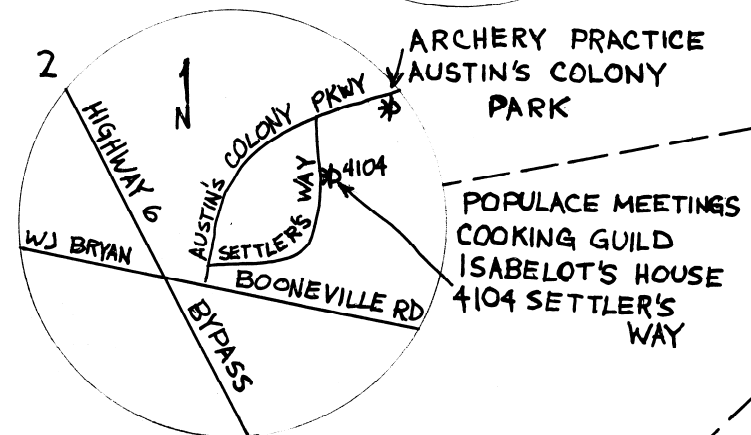 2
N
HIGHWAY 6
BYPASS
WJ BRYAN
BOONEVILLE RD
AUSTIN'S COLONY PKWY
SETTLER'S WAY
4104
ARCHERY PRACTICE
AUSTIN'S COLONY
PARK
POPULACE MEETINGS
COOKING GUILD
ISABELOT'S HOUSE
4104 SETTLER'S
WAY